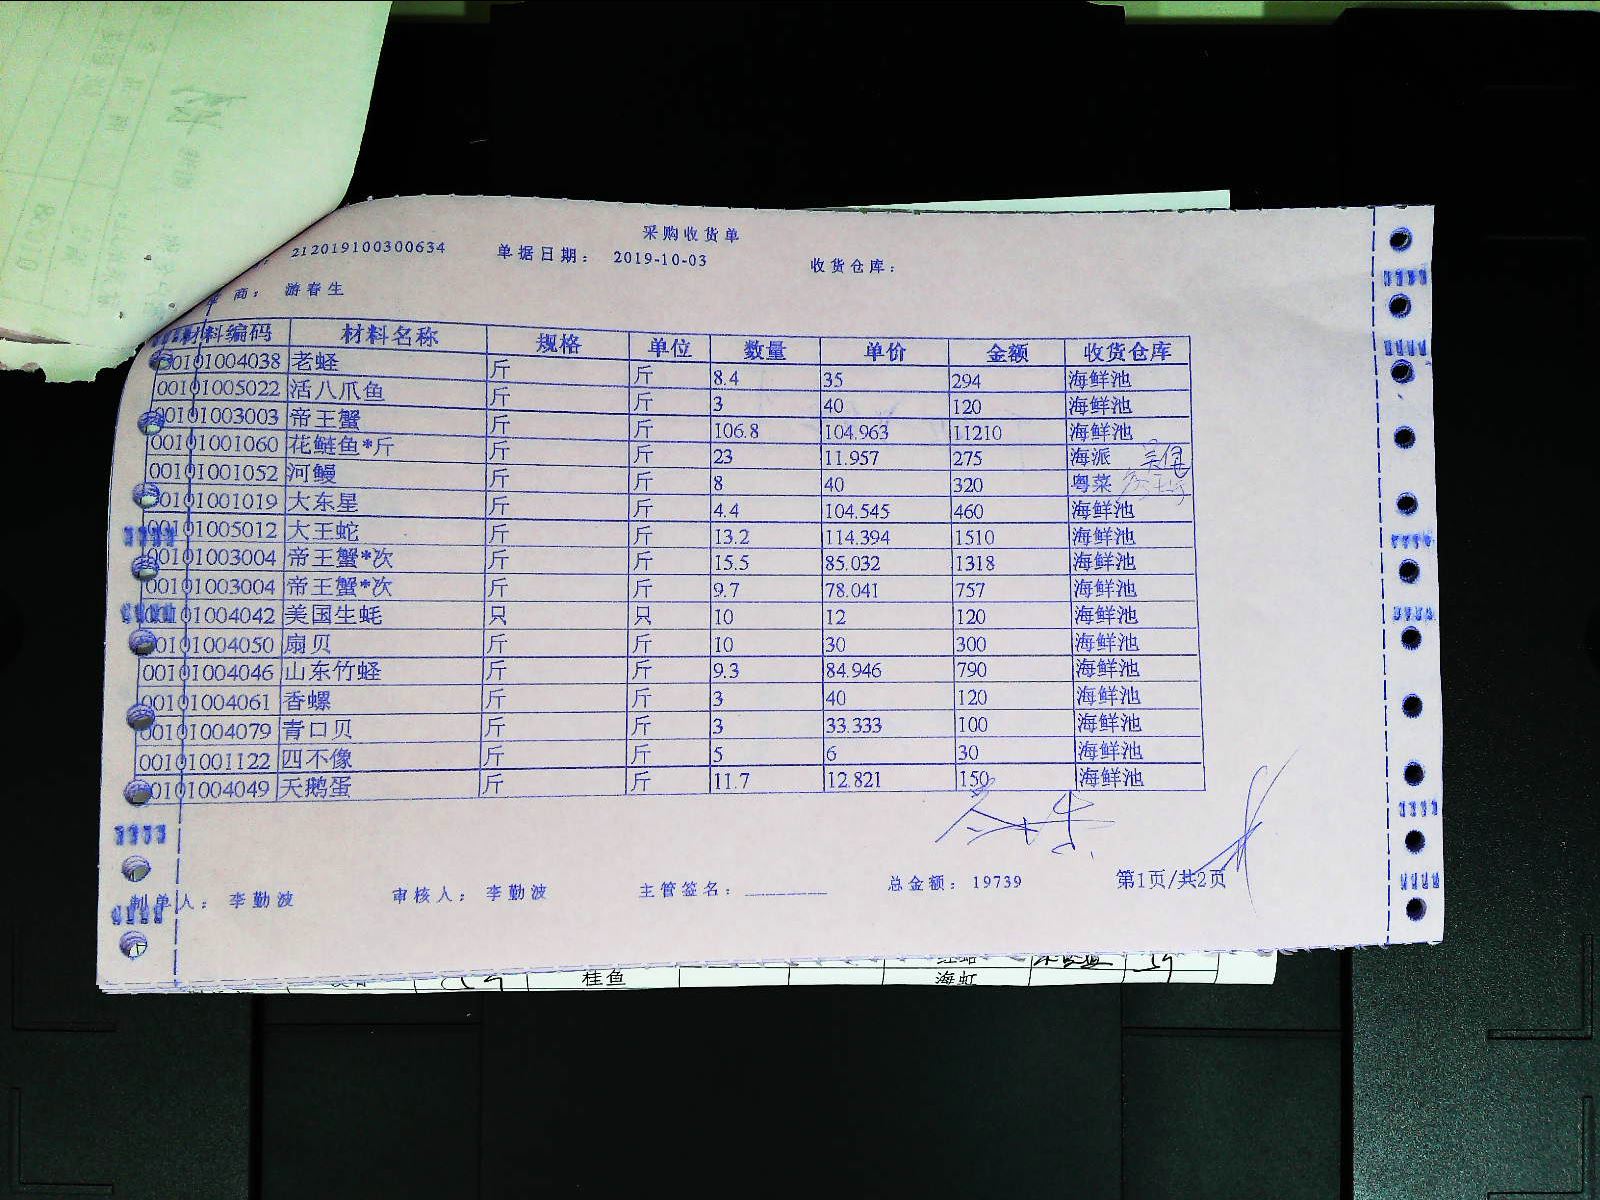 采购收货单
212019100300634 单据日期： 2019-10-03 收货仓库：
商： 游春生
材料编码 材料名称 规格 单位 数量 单价 金额 收货仓库
00101004038 老蛏 斤 斤 8.4 35 294 海鲜池
00101005022 活八爪鱼 斤 斤 3 40 120 海鲜池
00101003003 帝王蟹 斤 斤 106.8 104.963 11210 海鲜池
00101001060 花鲢鱼*斤 斤 斤 23 11.957 275 海派
00101001052 河鳗 斤 斤 8 40 320 粤菜
00101001019 大东星 斤 斤 4.4 104.545 460 海鲜池
00101005012 大王蛇 斤 斤 13.2 114.394 1510 海鲜池
00101003004 帝王蟹*次 斤 斤 15.5 85.032 1318 海鲜池
00101003004 帝王蟹*次 斤 斤 9.7 78.041 757 海鲜池
00101004042 美国生蚝 只 只 10 12 120 海鲜池
00101004050 扇贝 斤 斤 10 30 300 海鲜池
00101004046 山东竹蛏 斤 斤 9.3 84.946 790 海鲜池
00101004061 香螺 斤 斤 3 40 120 海鲜池
00101004079 青口贝 斤 斤 3 33.333 100 海鲜池
00101001122 四不像 斤 斤 5 6 30 海鲜池
00101004049 天鹅蛋 斤 斤 11.7 12.821 150 海鲜池
制单人： 李勤波 审核人： 李勤波 主管签名： 总金额： 19739 第1页/共2页
桂鱼 海虹